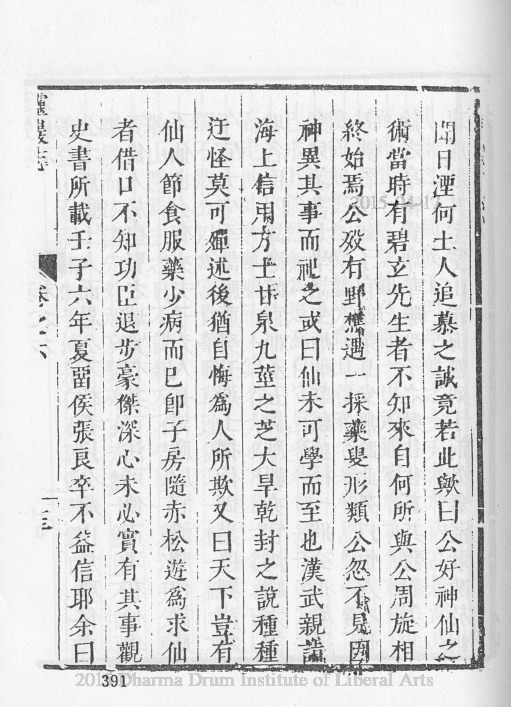 聞日湮何土人追慕之誠竟若此歟曰公好神仙之
術當時有碧玄先生者不知來自何所與公周旋相
終始焉公殁有野樵遇一採藥叟形類公忽不見因
神異其事而祀之或曰仙未可學而至也漢武親講
海上信用方士甘泉九莖之芝大旱乾封之說種種
迂怪莫可殫述後猶自悔爲人所欺又曰天下豈有
仙人節食服藥少病而已卽子房隨赤松遊爲求仙
者借口不知功臣退步豪傑深心未必實有其事觀
史書所載壬子六年夏畱侯張良卒不益信耶余曰
靈巖志
卷之六
十三
391
Dharma Drum Institute of Liberal Arts